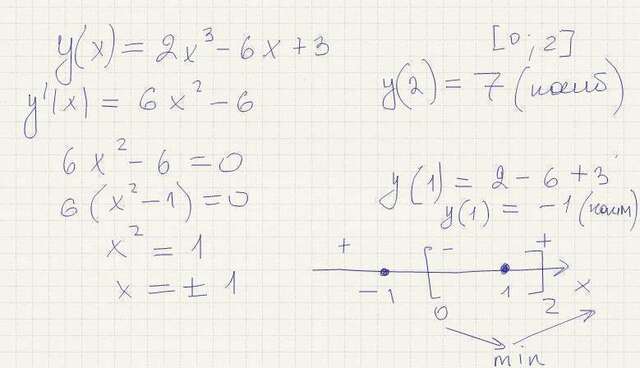 y(x) = 2x³ - 6x + 3
y'(x) = 6x² - 6
6x² - 6 = 0
6(x² - 1) = 0
x² = 1
x = ± 1
[0; 2]
y(2) = 7 (наиб)
y(1) = 2 - 6 + 3
y(1) = -1 (наим)
+ - +
-1 0 1 2 x
min